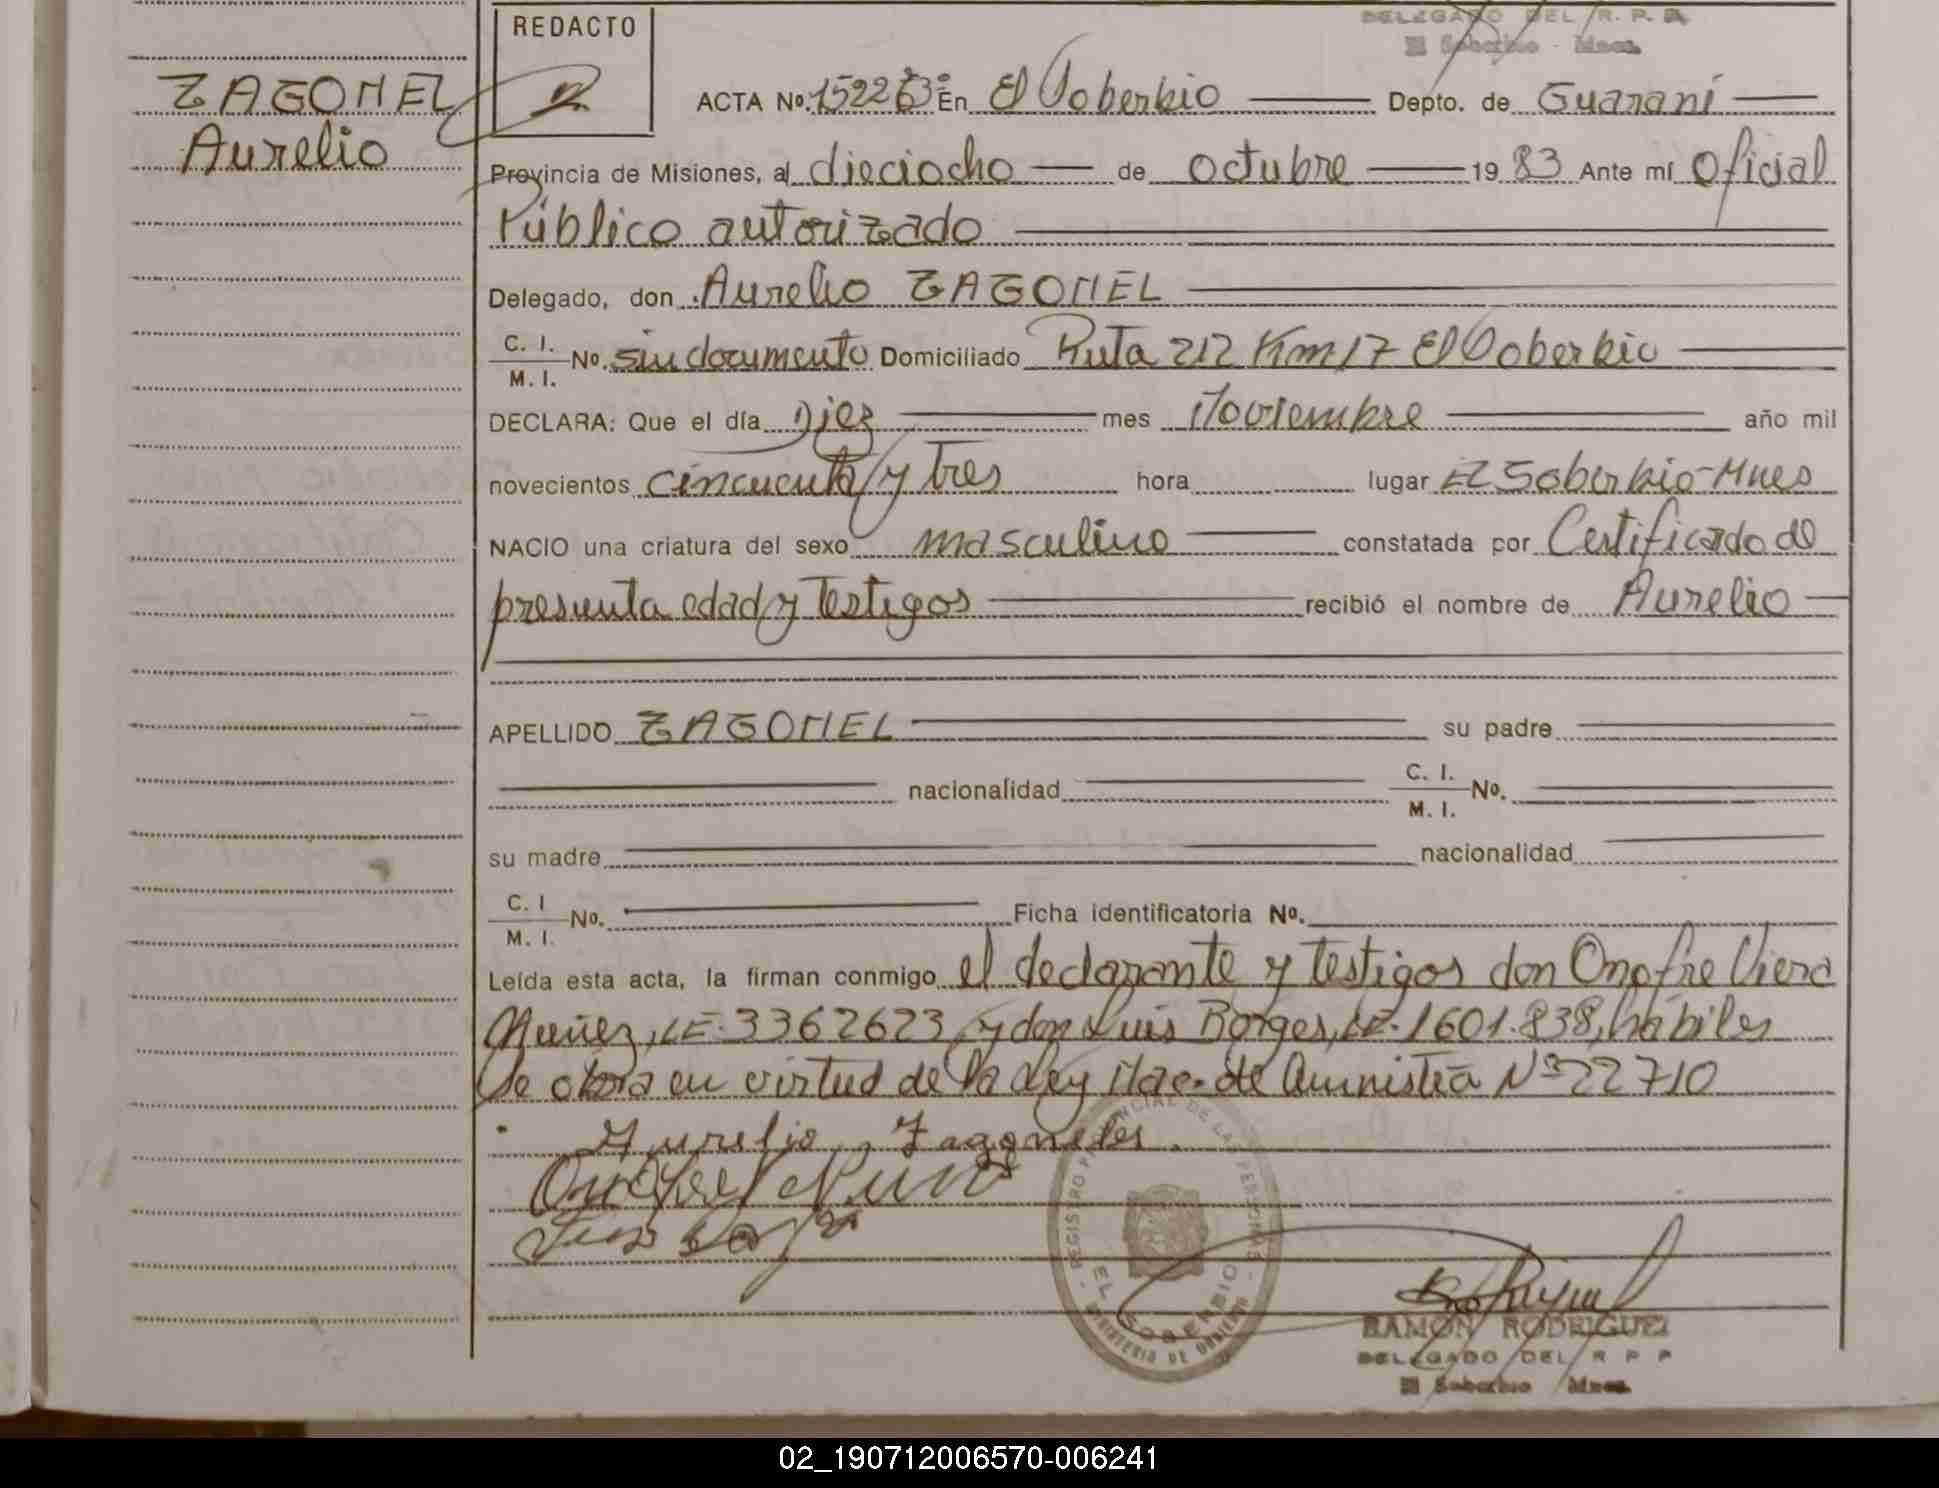 REDACTO
DELEGADO DEL R. P. P.
El Soberbio - Mnes.
ZAGONEL
Aurelio
ACTA No. En El Soberbio Depto. de Guaraní
Provincia de Misiones, al dieciocho de octubre 1983 Ante mí Oficial
Público autorizado
Delegado, don Aurelio ZAGONEL
C. I.
M. I. No. sin documento Domiciliado Ruta 212 Km 17 El Soberbio
DECLARA: Que el día Diez mes Noviembre año mil
novecientos cincuenta y tres hora lugar El Soberbio - Mnes
NACIO una criatura del sexo masculino constatada por Certificado de
presunta edad y Testigos recibió el nombre de Aurelio
APELLIDO ZAGONEL su padre
nacionalidad C. I.
M. I. No.
su madre nacionalidad
C. I
M. I. No. Ficha identificatoria No.
Leída esta acta, la firman conmigo el declarante y testigos don Onofre Viera
Nuñez, LE. 3362623, y don Luis Borges, LE. 1601.838, hábiles
Se obra en virtud de la Ley Nac. de Amnistía Nº 22710
Aurelio Zagonel
REGISTRO PROVINCIAL DE LAS PERSONAS
EL SOBERBIO
MINISTERIO DE GOBIERNO
RAMON RODRIGUEZ
DELEGADO DEL R P P
El Soberbio Mnes.
02_190712006570-006241